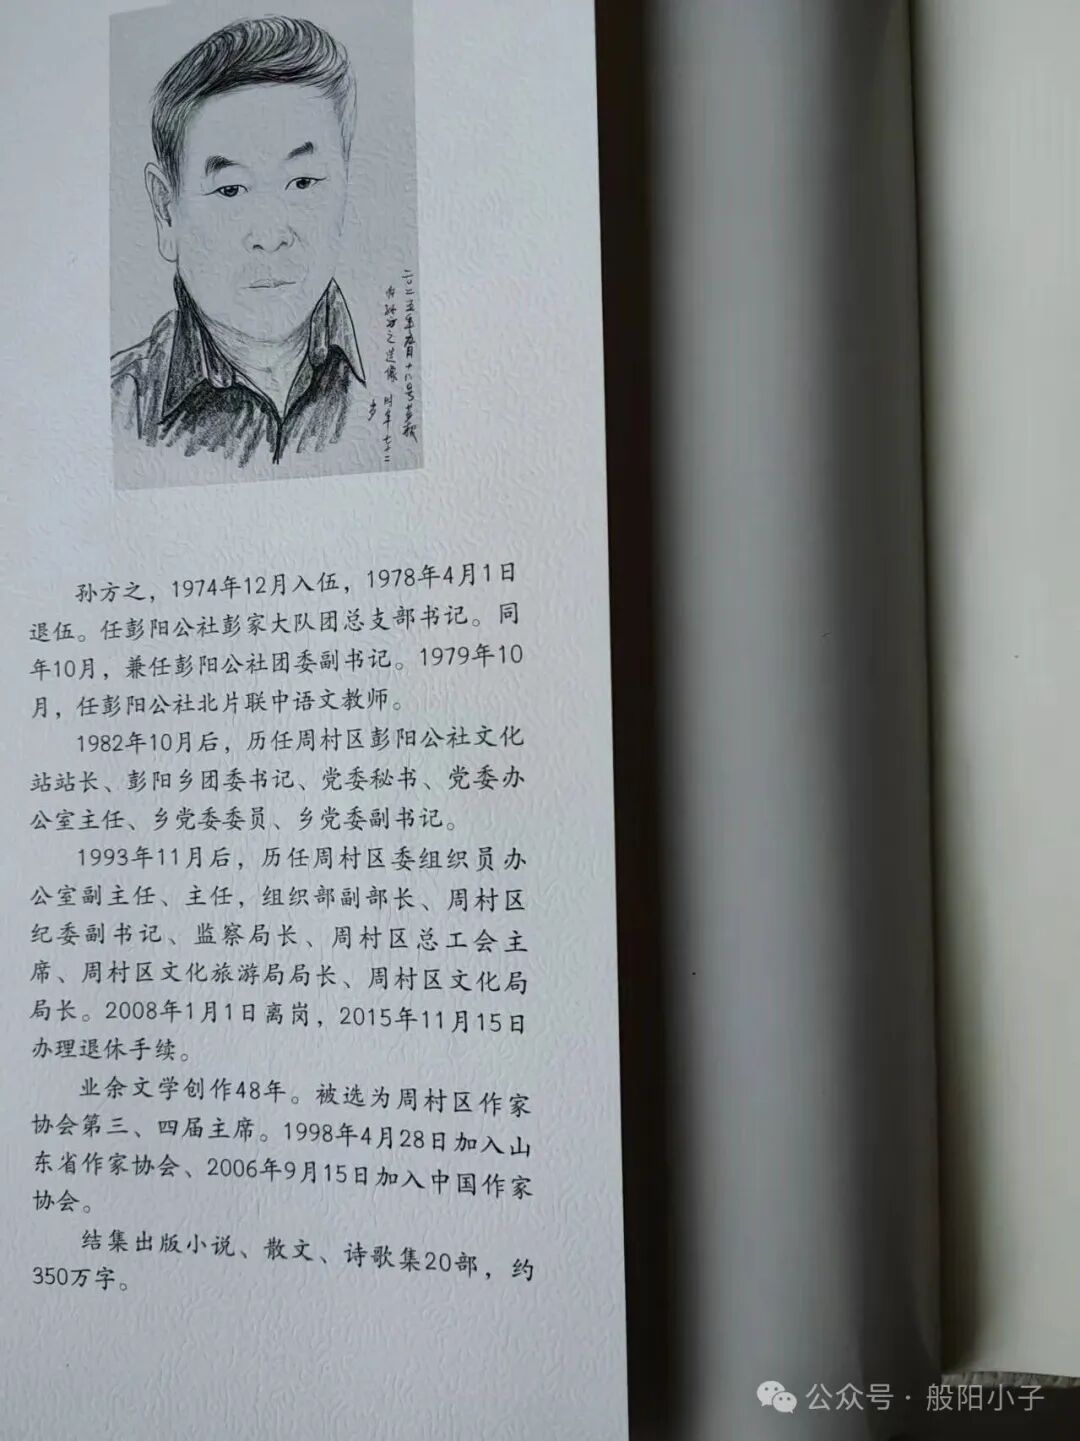 二〇二五年六月十八号黄秋
为孙方之造像 时年七十二
岁
孙方之，1974年12月入伍，1978年4月1日
退伍。任彭阳公社彭家大队团总支部书记。同
年10月，兼任彭阳公社团委副书记。1979年10
月，任彭阳公社北片联中语文教师。
1982年10月后，历任周村区彭阳公社文化
站站长、彭阳乡团委书记、党委秘书、党委办
公室主任、乡党委委员、乡党委副书记。
1993年11月后，历任周村区委组织员办
公室副主任、主任，组织部副部长、周村区
纪委副书记、监察局长、周村区总工会主
席、周村区文化旅游局局长、周村区文化局
局长。2008年1月1日离岗，2015年11月15日
办理退休手续。
业余文学创作48年。被选为周村区作家
协会第三、四届主席。1998年4月28日加入山
东省作家协会、2006年9月15日加入中国作家
协会。
结集出版小说、散文、诗歌集20部，约
350万字。
公众号·般阳小子